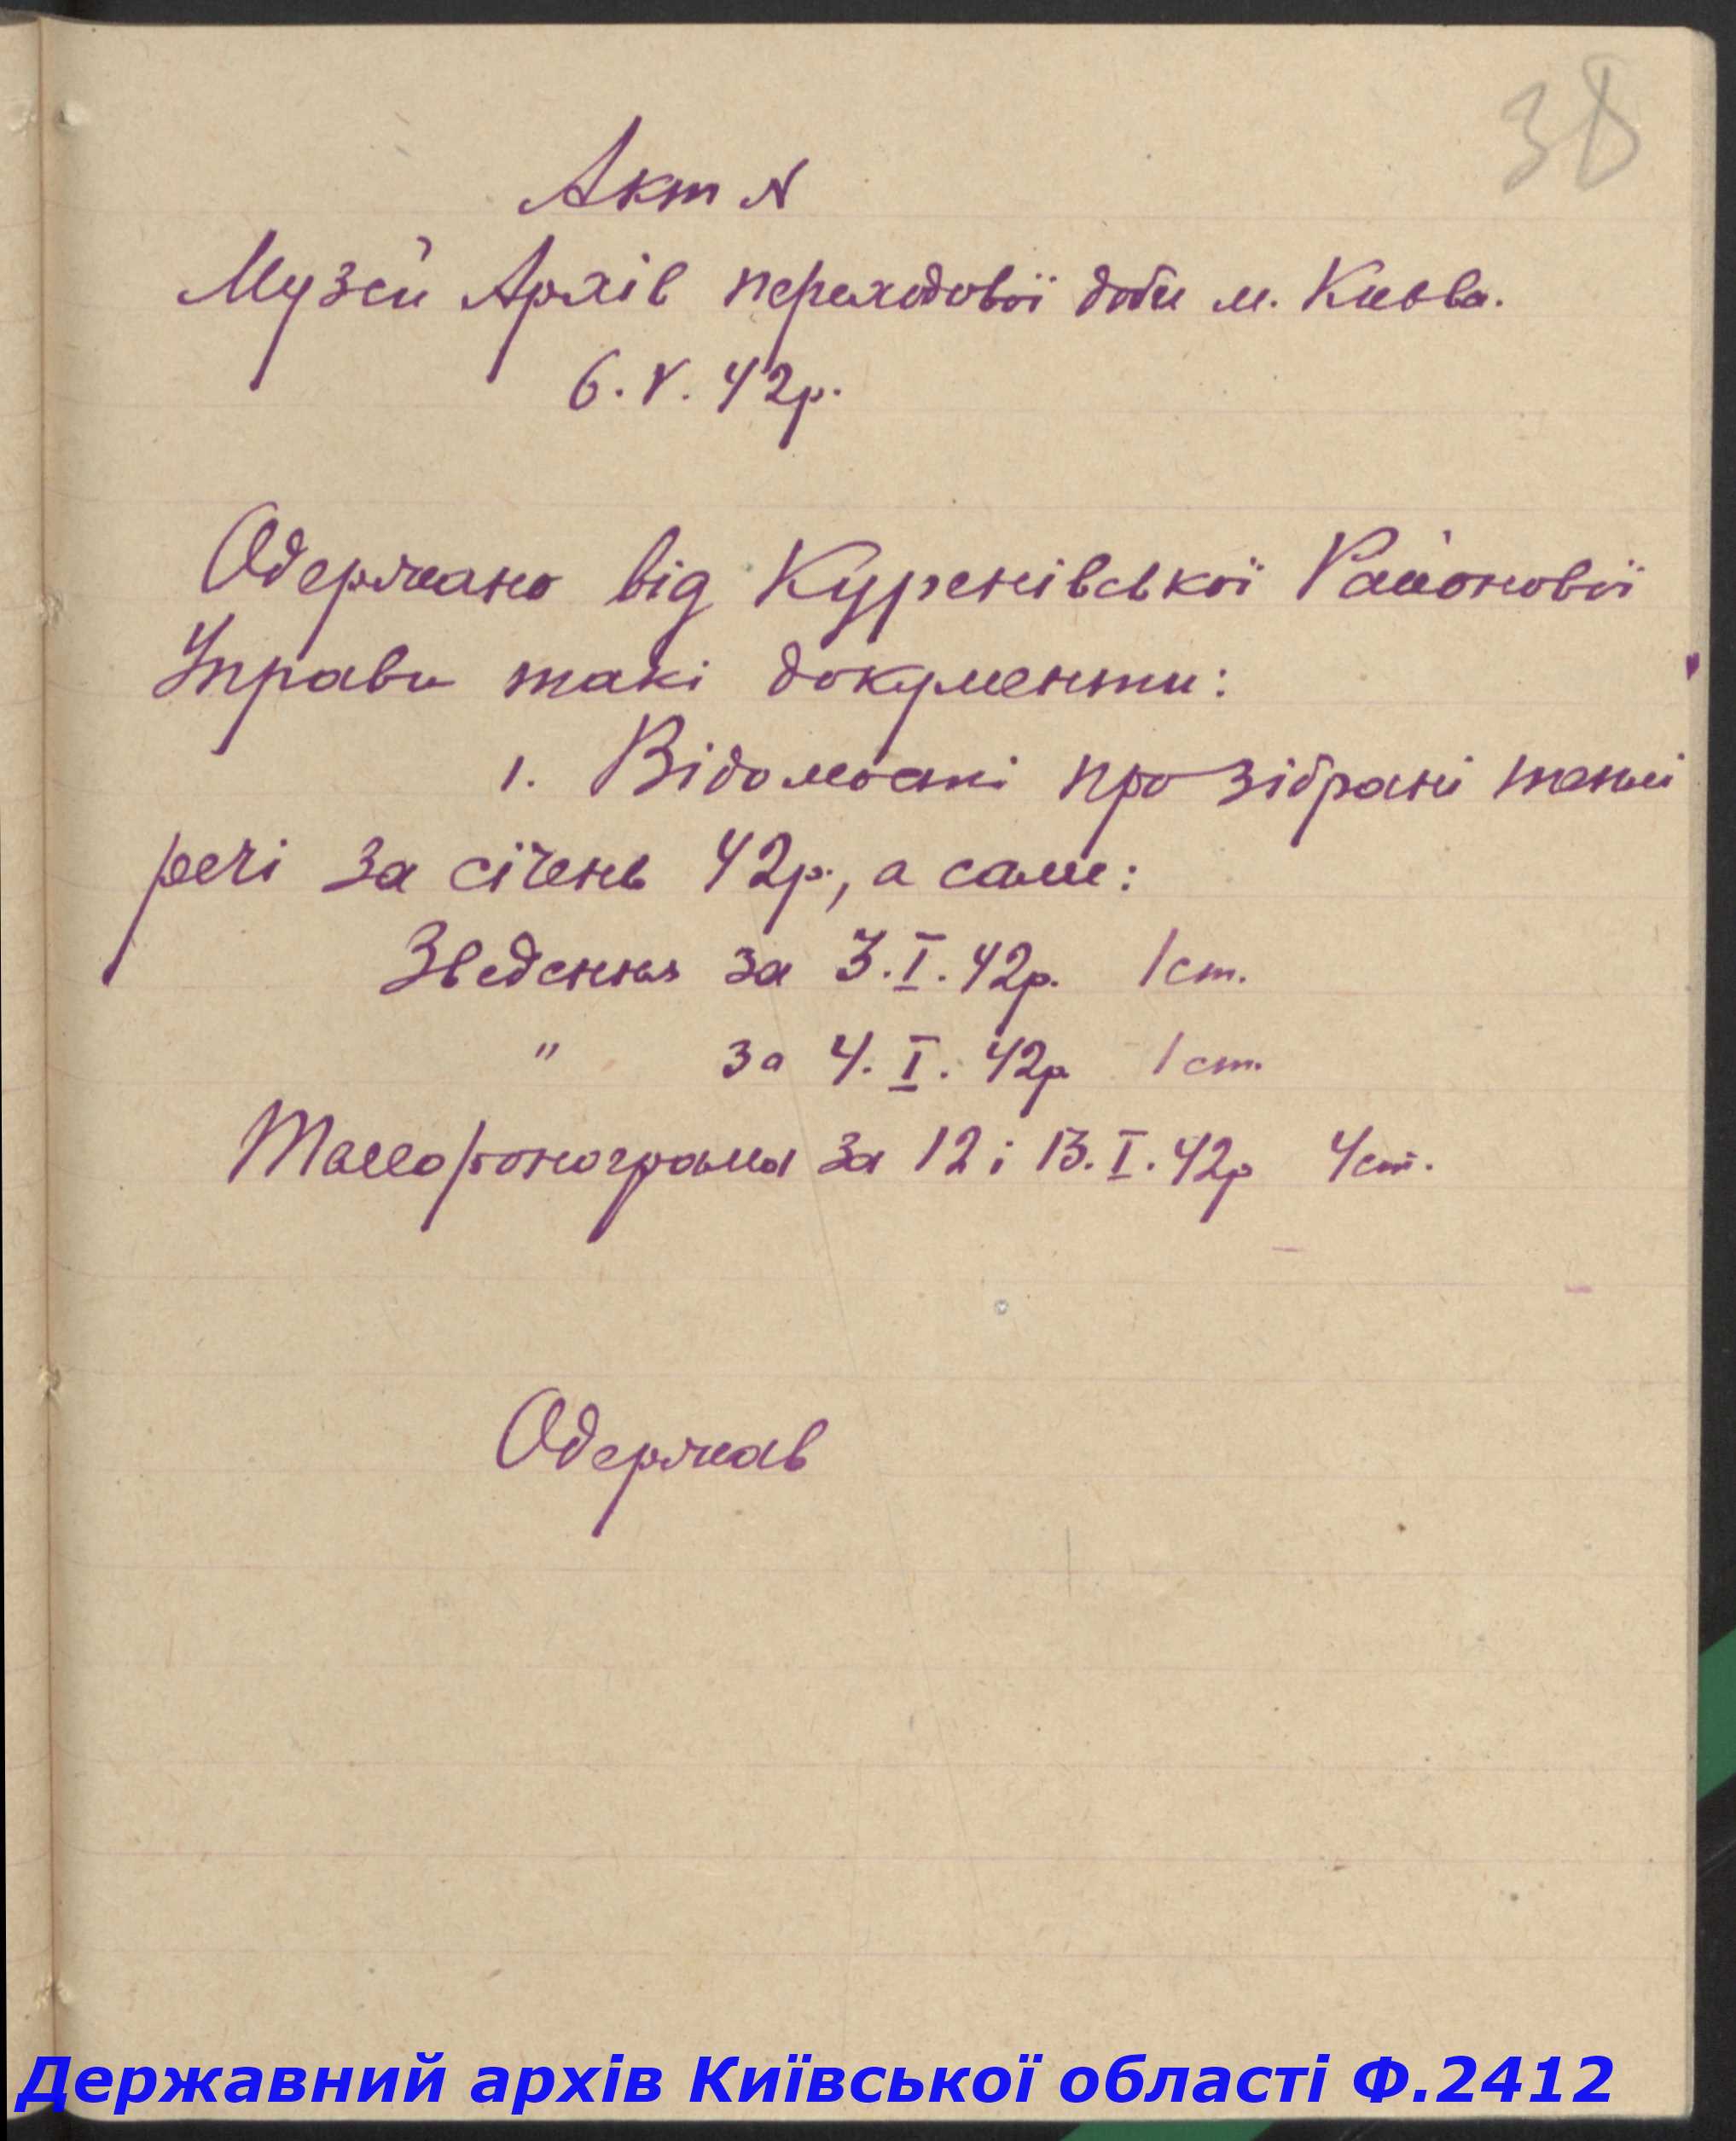 38
Акт N
Музей Архів переходової доби м. Києва.
6.V.42р.
Одержано від Куренівської Районової
Управи такі документи:
1. Відомості про зібрані теплі
речі за січень 42р., а саме:
Зведення за 3.I.42р. 1 ст.
" за 4.I.42р 1 ст.
Телефонограма за 12 і 13.I.42р 4 ст.
Одержав
Державний архів Київської області Ф.2412